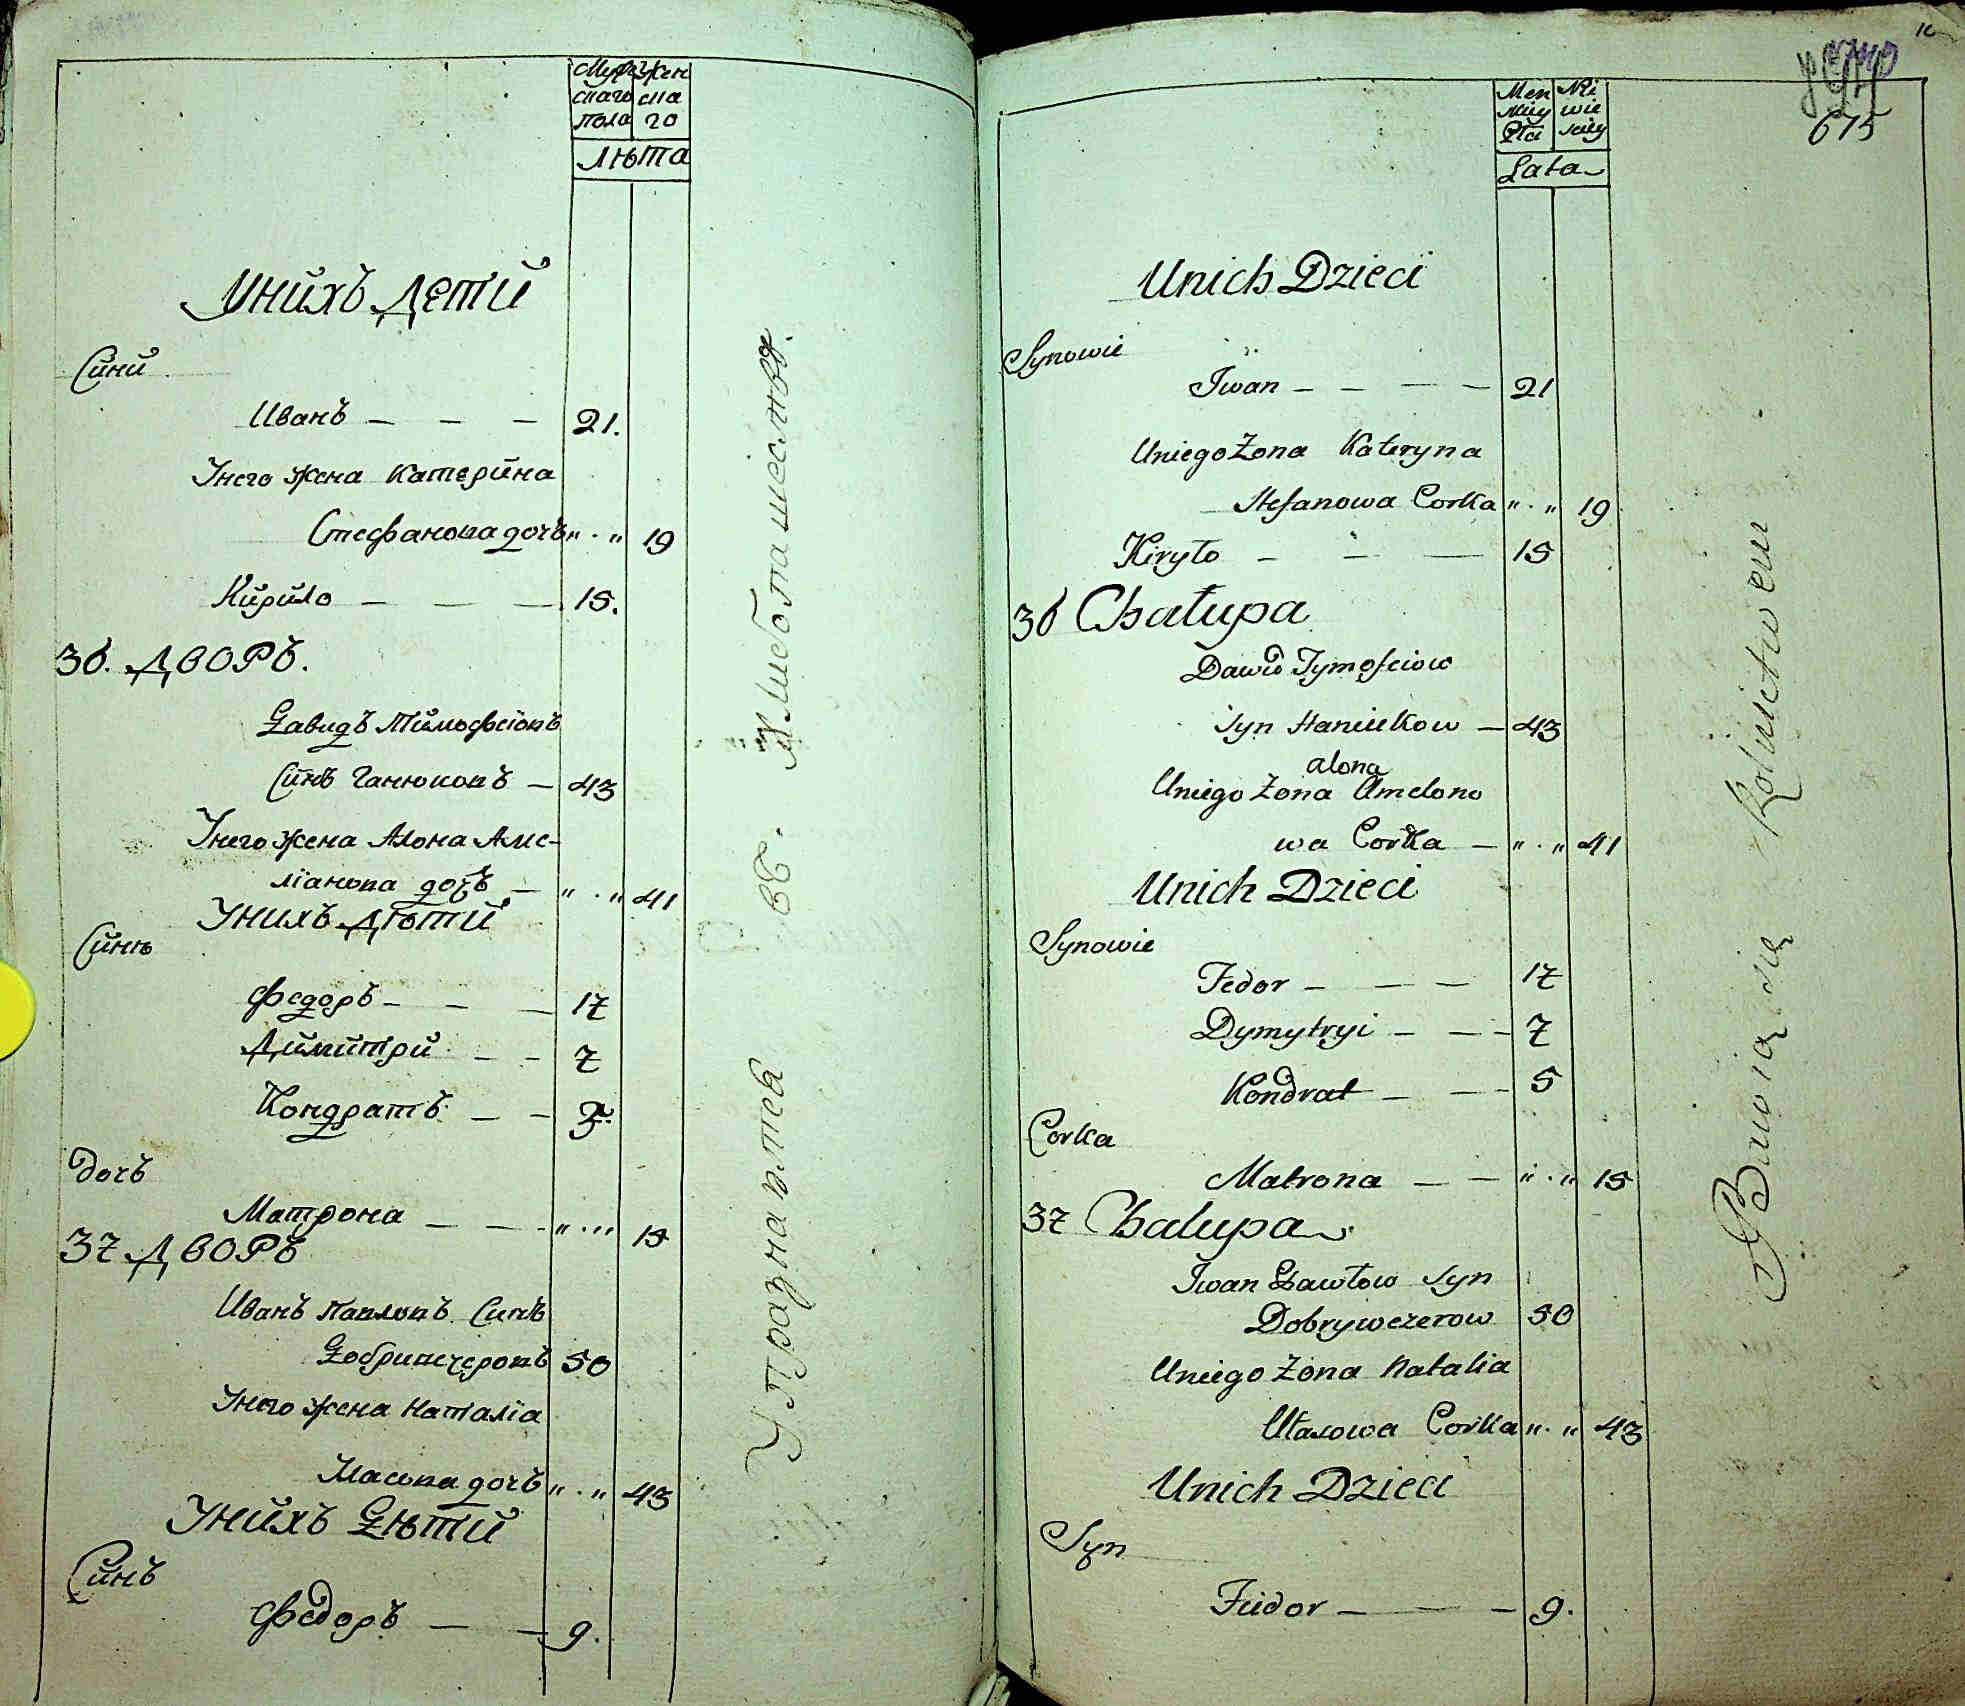 Муже Жен
скаго ска
пола го
лѣта
Унийхъ Дети
Сини
Иванъ — — — 21.
Унего жена Катерина
Стефанова дочъ " . " 19
Кирило — — — 15.
36. ДВОРЪ.
Давидъ Тимофеіовъ
Синъ Ганюковъ — 43
Унего жена Алона Аме-
ліанова дочъ — " . " 41
Унихъ Дѣти
Синѣ
Федоръ — — — 17
Димитри — — 7
Кондратъ — — 5.
дочъ
Матрона — — " . " 15
37 ДВОРЪ
Иванъ Павловъ Синъ
Добривечеровъ 50
Унего жена Наталіа
Власова дочъ " . " 43
Унихъ Дѣти
Синъ
Федоръ — — 9.
Упражняются въ. Хлебопашестве.
10
675
Men Nie
skiey wie
Płci skiey
Lata
Unich Dzieci
Synowie
Iwan — — — — 21
Uniego Żona Kateryna
Stefanowa Corka " . " 19
Kiryło — — — 15
36 Chałupa
Dawid Tymofeiow
Syn Haniukow — 43
alona
Uniego Żona Amelono
wa Corka — " . " 41
Unich Dzieci
Synowie
Fedor — — — 17
Dymytryi — — — 7
Kondrat — — — 5
Corka
Matrona — — " . " 15
37 Chałupa
Iwan Pawłow Syn
Dobryweczerow 50
Uniego Żona Natalia
Własowa Corka " . " 43
Unich Dzieci
Syn
Fiedor — — — 9.
Bawią się Rolnictwem